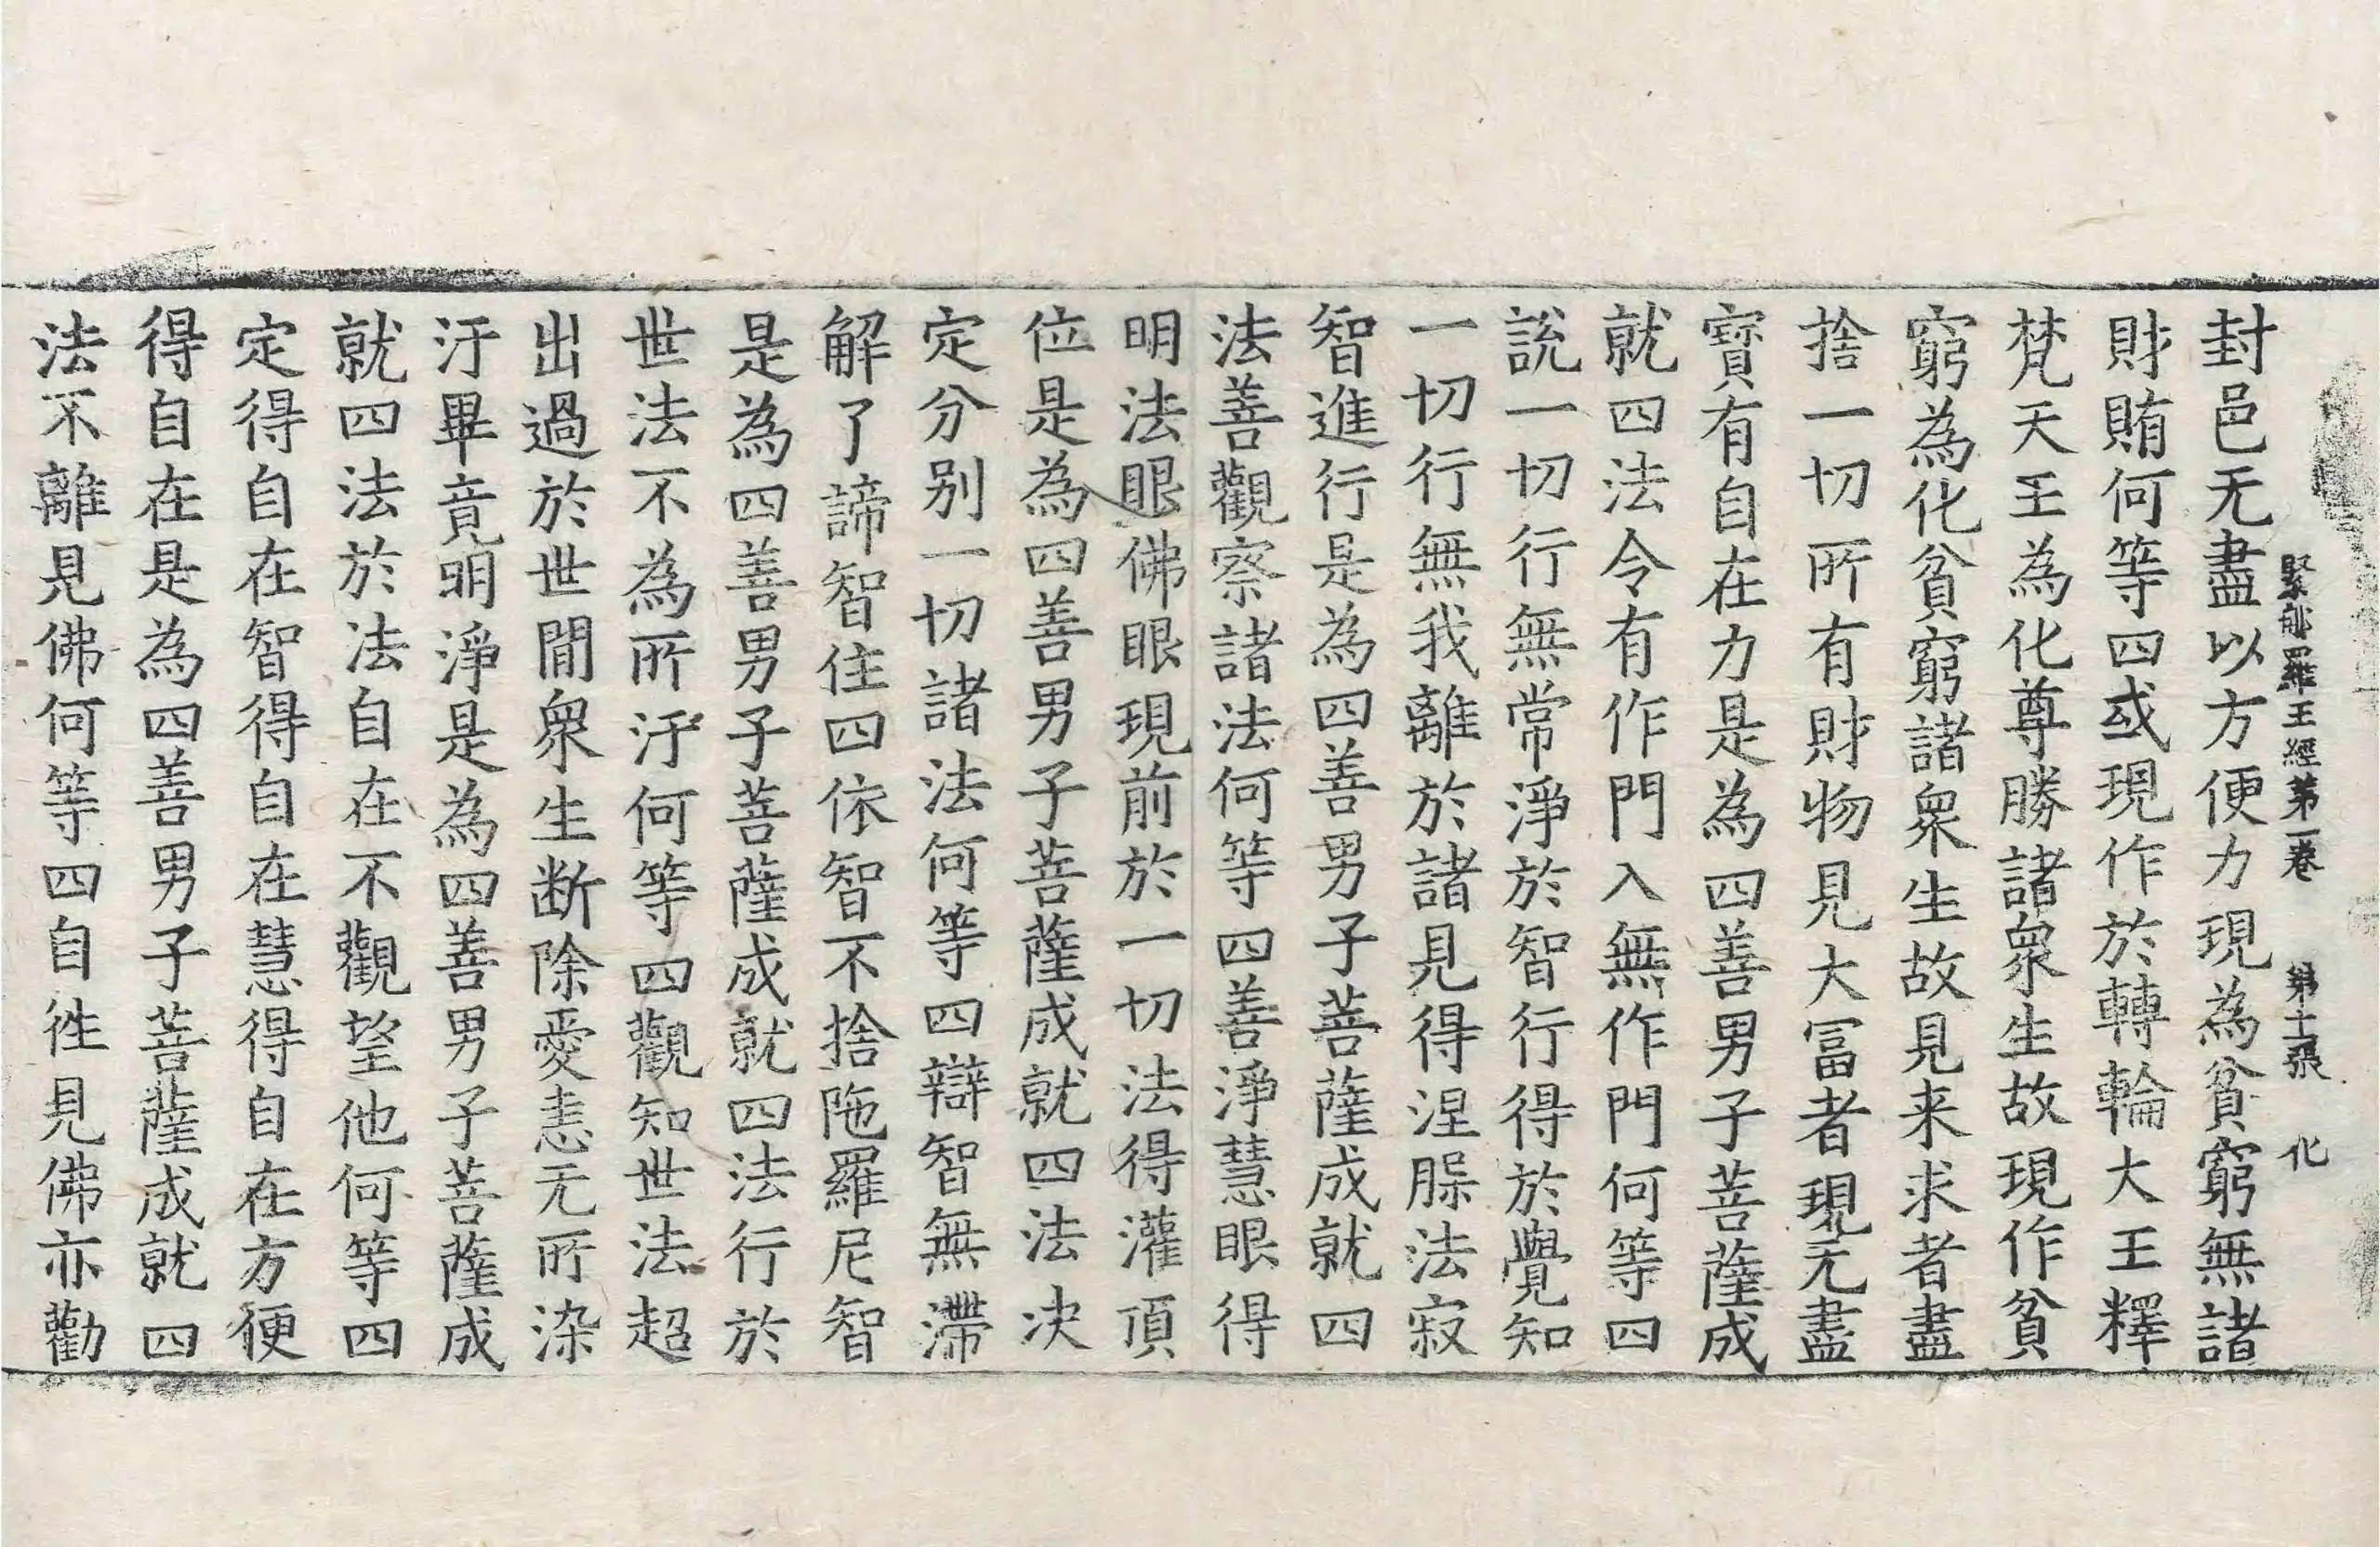 緊郍羅王經第一卷 第十二張 化
封邑无盡以方便力現為貧窮無諸
財賄何等四或現作於轉輪大王釋
梵天王為化尊勝諸衆生故現作貧
窮為化貧窮諸衆生故見来求者盡
捨一切所有財物見大冨者現无盡
寶有自在力是為四善男子菩薩成
就四法令有作門入無作門何等四
說一切行無常淨於智行得於覺知
一切行無我離於諸見得涅槃法寂
智進行是為四善男子菩薩成就四
法善觀察諸法何等四善淨慧眼得
明法眼佛眼現前於一切法得灌頂
位是為四善男子菩薩成就四法决
定分别一切諸法何等四辯智無滯
解了諦智住四依智不捨陁羅尼智
是為四善男子菩薩成就四法行於
世法不為所汙何等四觀知世法超
出過於世間衆生断除愛恚无所染
汙畢竟明淨是為四善男子菩薩成
就四法於法自在不觀望他何等四
定得自在智得自在慧得自在方便
得自在是為四善男子菩薩成就四
法不離見佛何等四自徃見佛亦勸